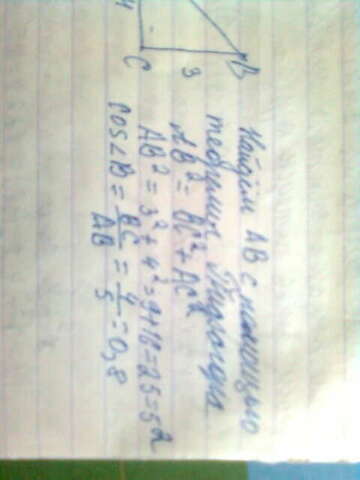 4
C
3
B
Найдём AB с помощью
теоремы Пифагора
AB² = BC² + AC²
AB² = 3² + 4² = 9 + 16 = 25 = 5²
cos∠B = BC/AB = 4/5 = 0,8